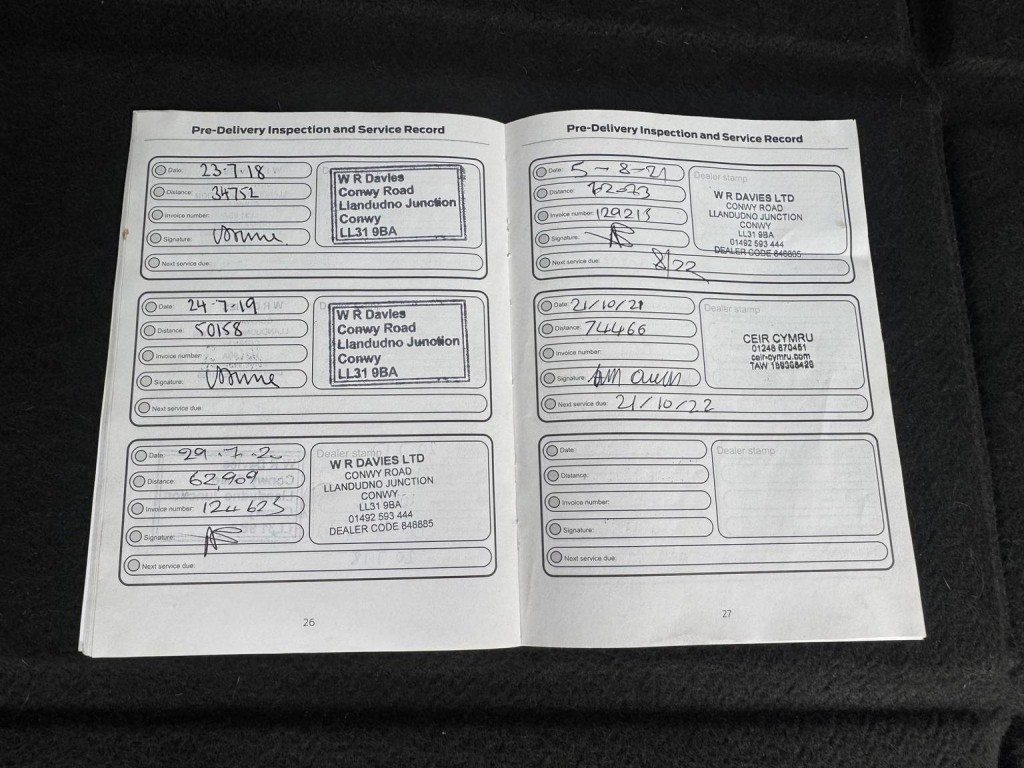 Pre-Delivery Inspection and Service Record
Date: 23.7.18
Distance: 34752
Invoice number:
Signature:
Next service due:
W R Davies
Conwy Road
Llandudno Junction
Conwy
LL31 9BA
Date: 24.7.19
Distance: 50158
Invoice number:
Signature:
Next service due:
W R Davies
Conwy Road
Llandudno Junction
Conwy
LL31 9BA
Date: 29.7.20
Distance: 62,909
Invoice number: 124625
Signature:
Next service due:
Dealer stamp
W R DAVIES LTD
CONWY ROAD
LLANDUDNO JUNCTION
CONWY
LL31 9BA
01492 593 444
DEALER CODE 848885
26
Pre-Delivery Inspection and Service Record
Date: 5-8-21
Distance:
Invoice number: 129215
Signature:
Next service due: 8/22
Dealer stamp
W R DAVIES LTD
CONWY ROAD
LLANDUDNO JUNCTION
CONWY
LL31 9BA
01492 593 444
DEALER CODE 848885
Date: 21/10/21
Distance: 74466
Invoice number:
Signature:
Next service due: 21/10/22
Dealer stamp
CEIR CYMRU
01248 670451
ceir-cymru.com
Date:
Distance:
Invoice number:
Signature:
Next service due:
Dealer stamp
27